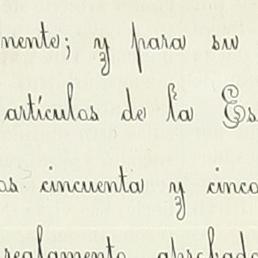 nente; y para su
artículos de la Es
os cincuenta y cinco
reglamento aprobado